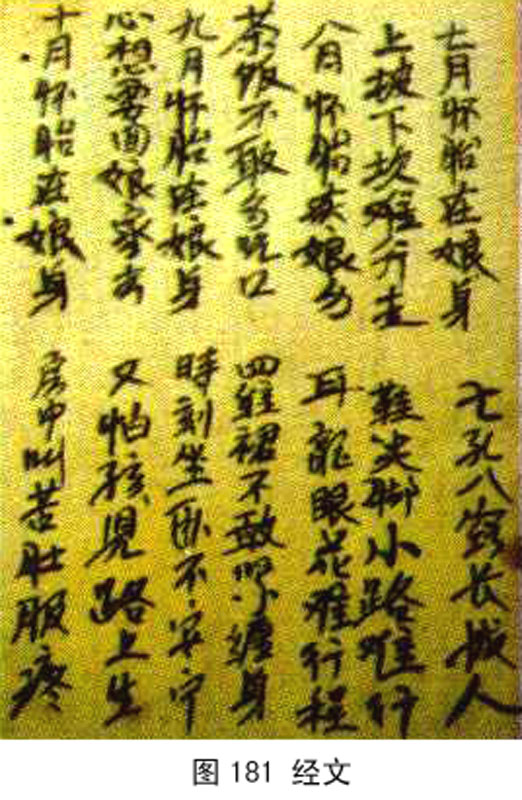 七月怀胎在娘身 七孔八窍长成人
上坡下坎难行走 鞋尖脚小路难行
八月怀胎 娘 耳龍眼花难行程
茶饭不敢多吃口 裙不敢 缠身
九月怀胎在娘身 時刻坐卧不安宁
心想要回娘家去 又怕孩児路上生
十月怀胎在娘身 房中叫苦肚腹疼
图181 经文